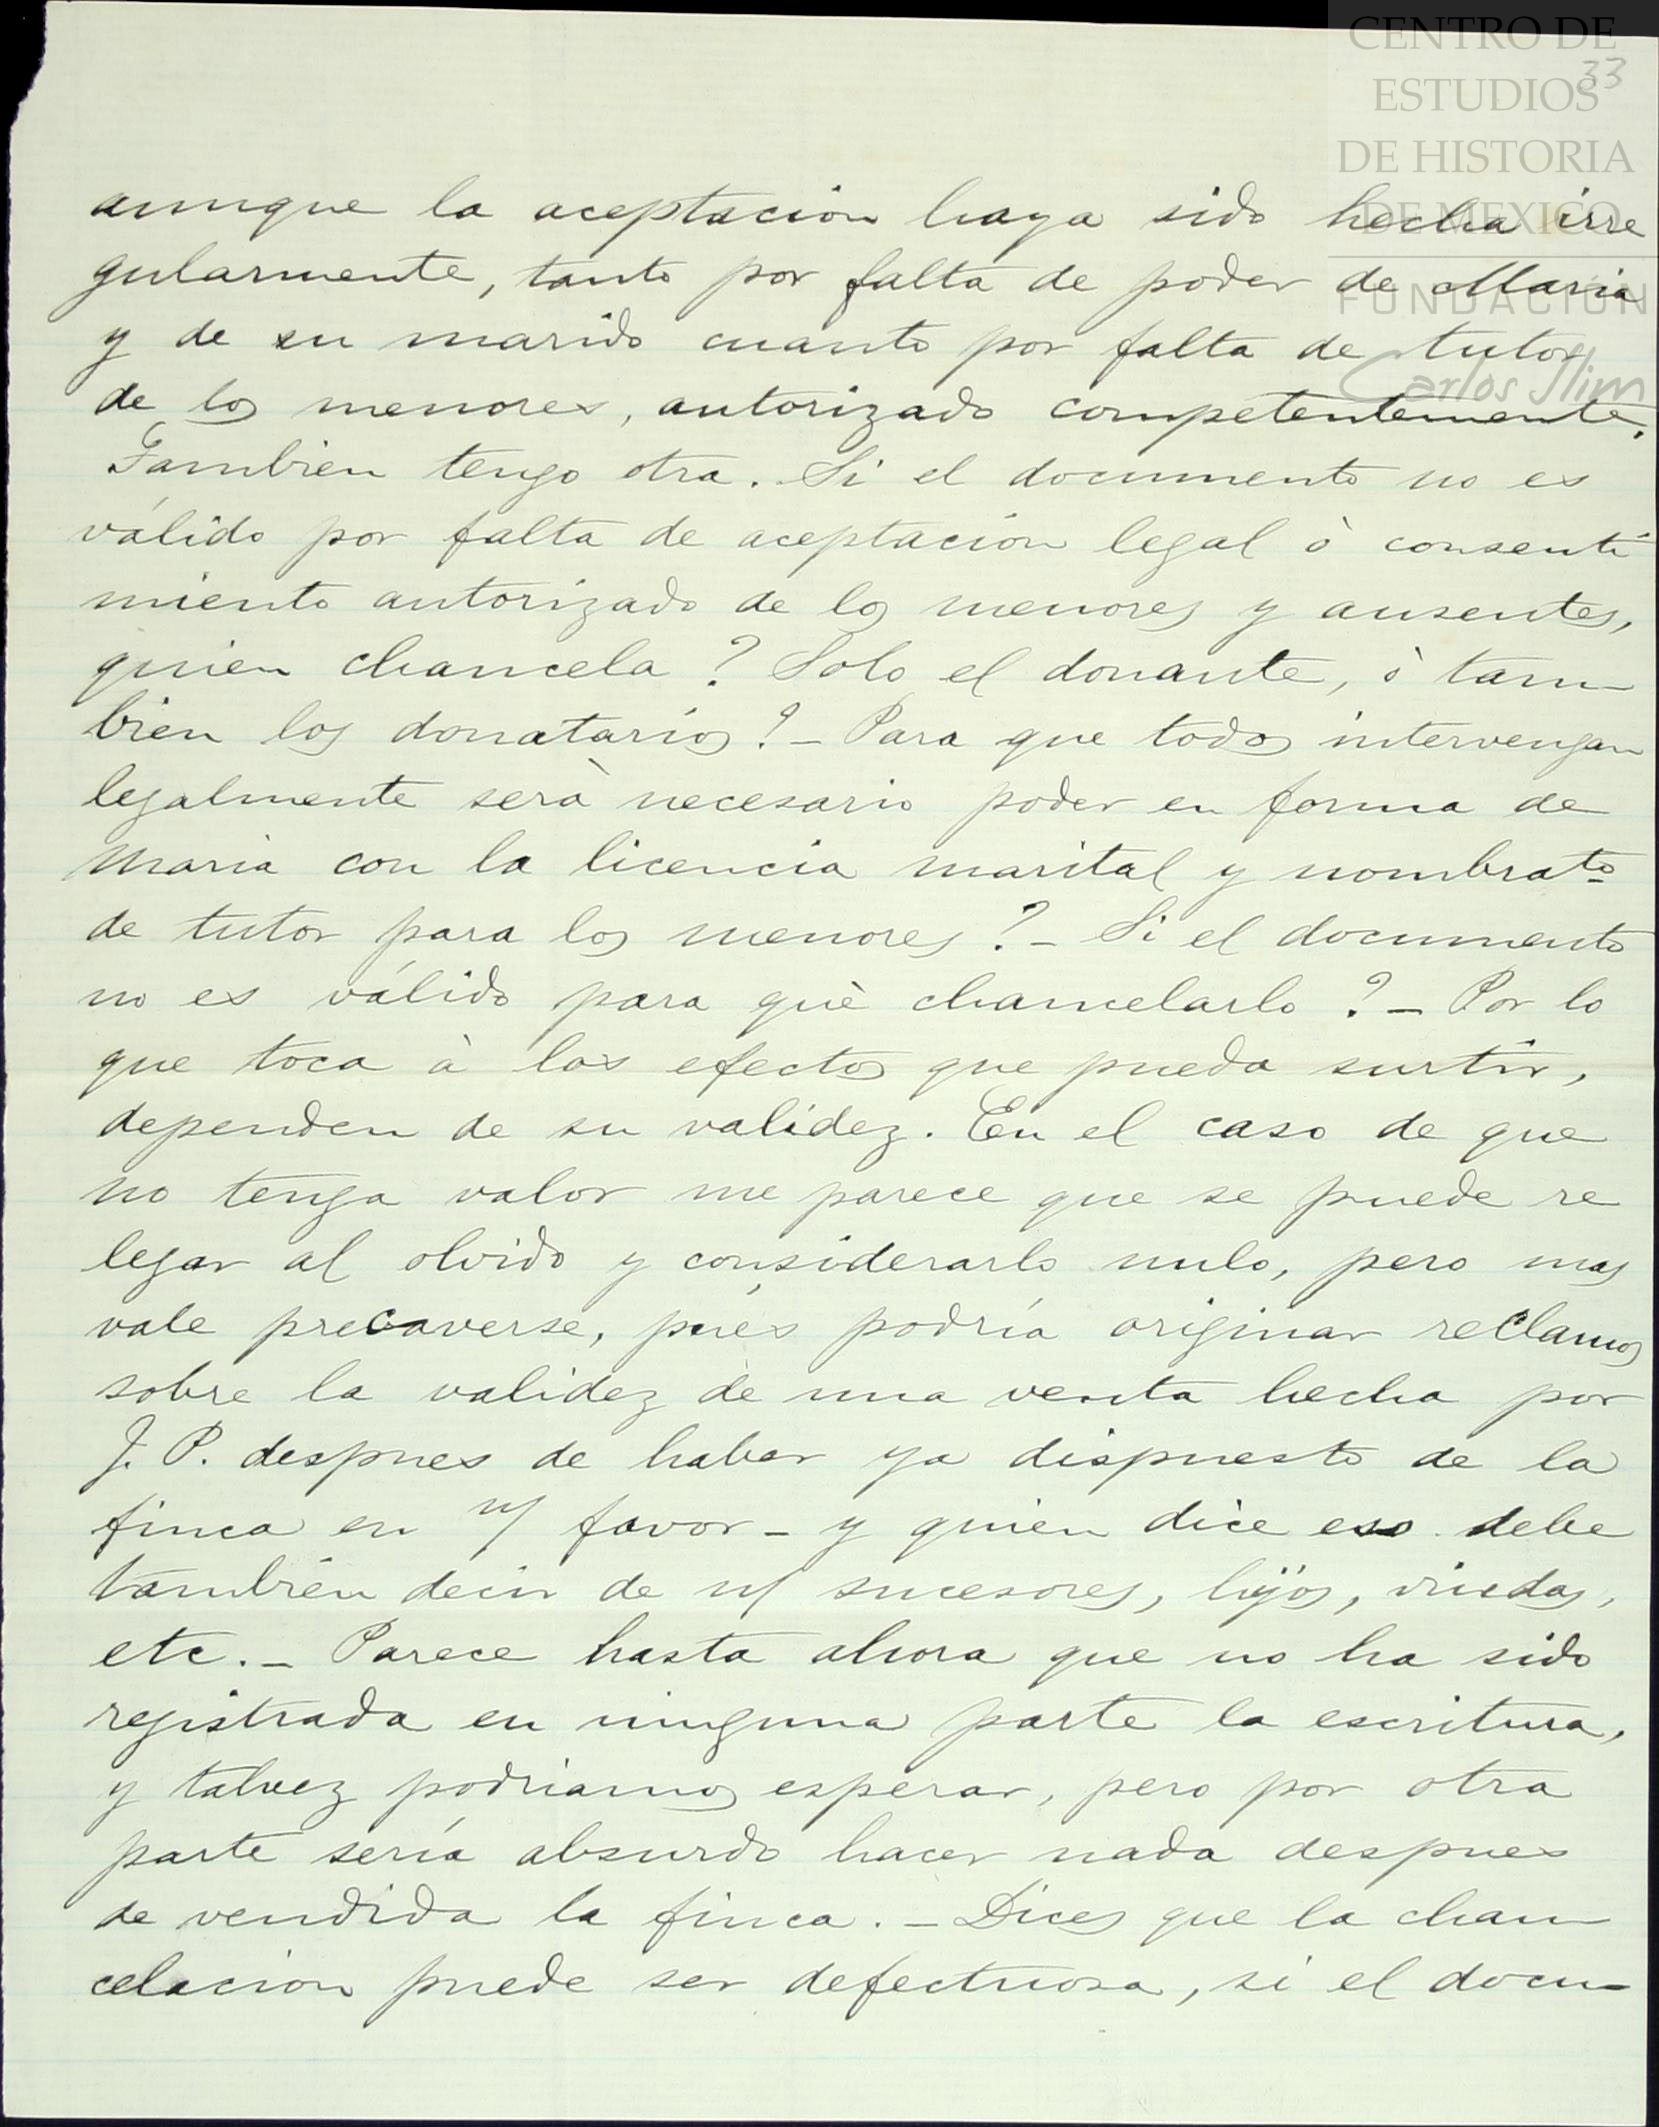 CENTRO DE
ESTUDIOS
DE HISTORIA
DE MEXICO
FUNDACION
Carlos Slim
33
aunque la aceptacion haya sido hecha irre
gularmente, tanto por falta de poder de Maria
y de su marido cuanto por falta de tutor
de los menores, autorizado competentemente.
Tambien tengo otra. Si el documento no es
válido por falta de aceptacion legal ò consenti
miento autorizado de los menores y ausentes,
quien chancela? Solo el donante, ò tam
bien los donatarios? _ Para que todos intervengan
legalmente serà necesario poder en forma de
Maria con la licencia marital y nombrato
de tutor para los menores? _ Si el documento
no es válido para què chancelarlo? _ Por lo
que toca à los efectos que pueda surtir,
dependen de su validez. En el caso de que
no tenga valor me parece que se puede re
legar al olvido y considerarlo nulo, pero mas
vale precaverse, pués podría originar reclamos
sobre la validez de una venta hecha por
J. P. despues de haber ya dispuesto de la
finca en n/ favor _ y quien dice eso debe
también decir de n/ sucesores, hijos, viudas,
etc. _ Parece hasta ahora que no ha sido
registrada en ninguna parte la escritura,
y talvez podriamos esperar, pero por otra
parte sería absurdo hacer nada despues
de vendida la finca. _ Dices que la chan
celacion puede ser defectuosa, si el docu-